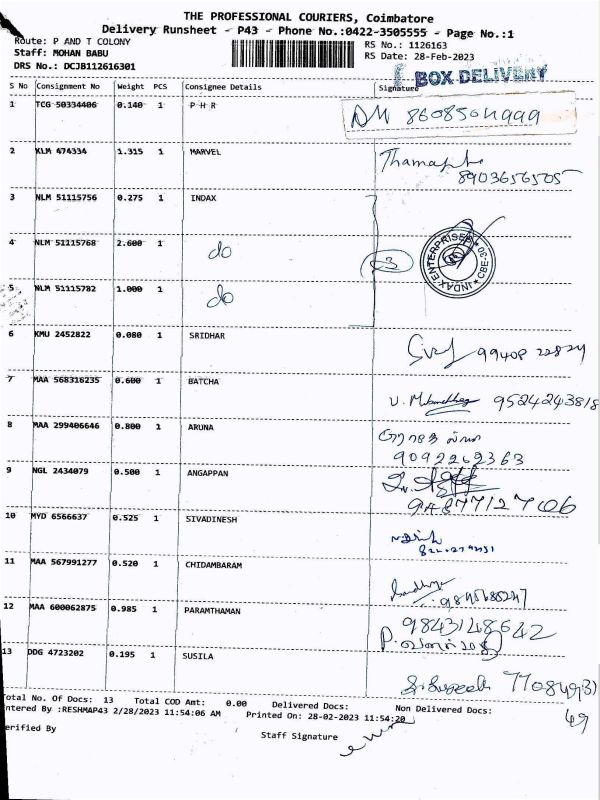 THE PROFESSIONAL COURIERS, Coimbatore
Delivery Runsheet - P43 - Phone No.:0422-3505555 - Page No.:1
Route: P AND T COLONY RS No.: 1126163
Staff: MOHAN BABU RS Date: 28-Feb-2023
DRS No.: DCJB112616301
BOX DELIVERY
S No Consignment No Weight PCS Consignee Details Signature
1 TCG 50334406 0.140 1 P H R
2 KLM 474334 1.315 1 MARVEL
8903656505
3 NLM 51115756 0.275 1 INDAX
4 NLM 51115768 2.600 1 do
INDAX ENTERPRISES CBE-30
5 NLM 51115782 1.000 1 do
6 KMU 2452822 0.080 1 SRIDHAR
7 MAA 568316235 0.600 1 BATCHA
9524243818
8 MAA 299406646 0.800 1 ARUNA
9 NGL 2434079 0.500 1 ANGAPPAN
10 MYD 6566637 0.525 1 SIVADINESH
11 MAA 567991277 0.520 1 CHIDAMBARAM
12 MAA 600062875 0.985 1 PARAMTHAMAN
9843148642
13 DDG 4723202 0.195 1 SUSILA
Total No. Of Docs: 13 Total COD Amt: 0.00 Delivered Docs: Non Delivered Docs:
ntered By :RESHMAP43 2/28/2023 11:54:06 AM Printed On: 28-02-2023 11:54:20
erified By Staff Signature